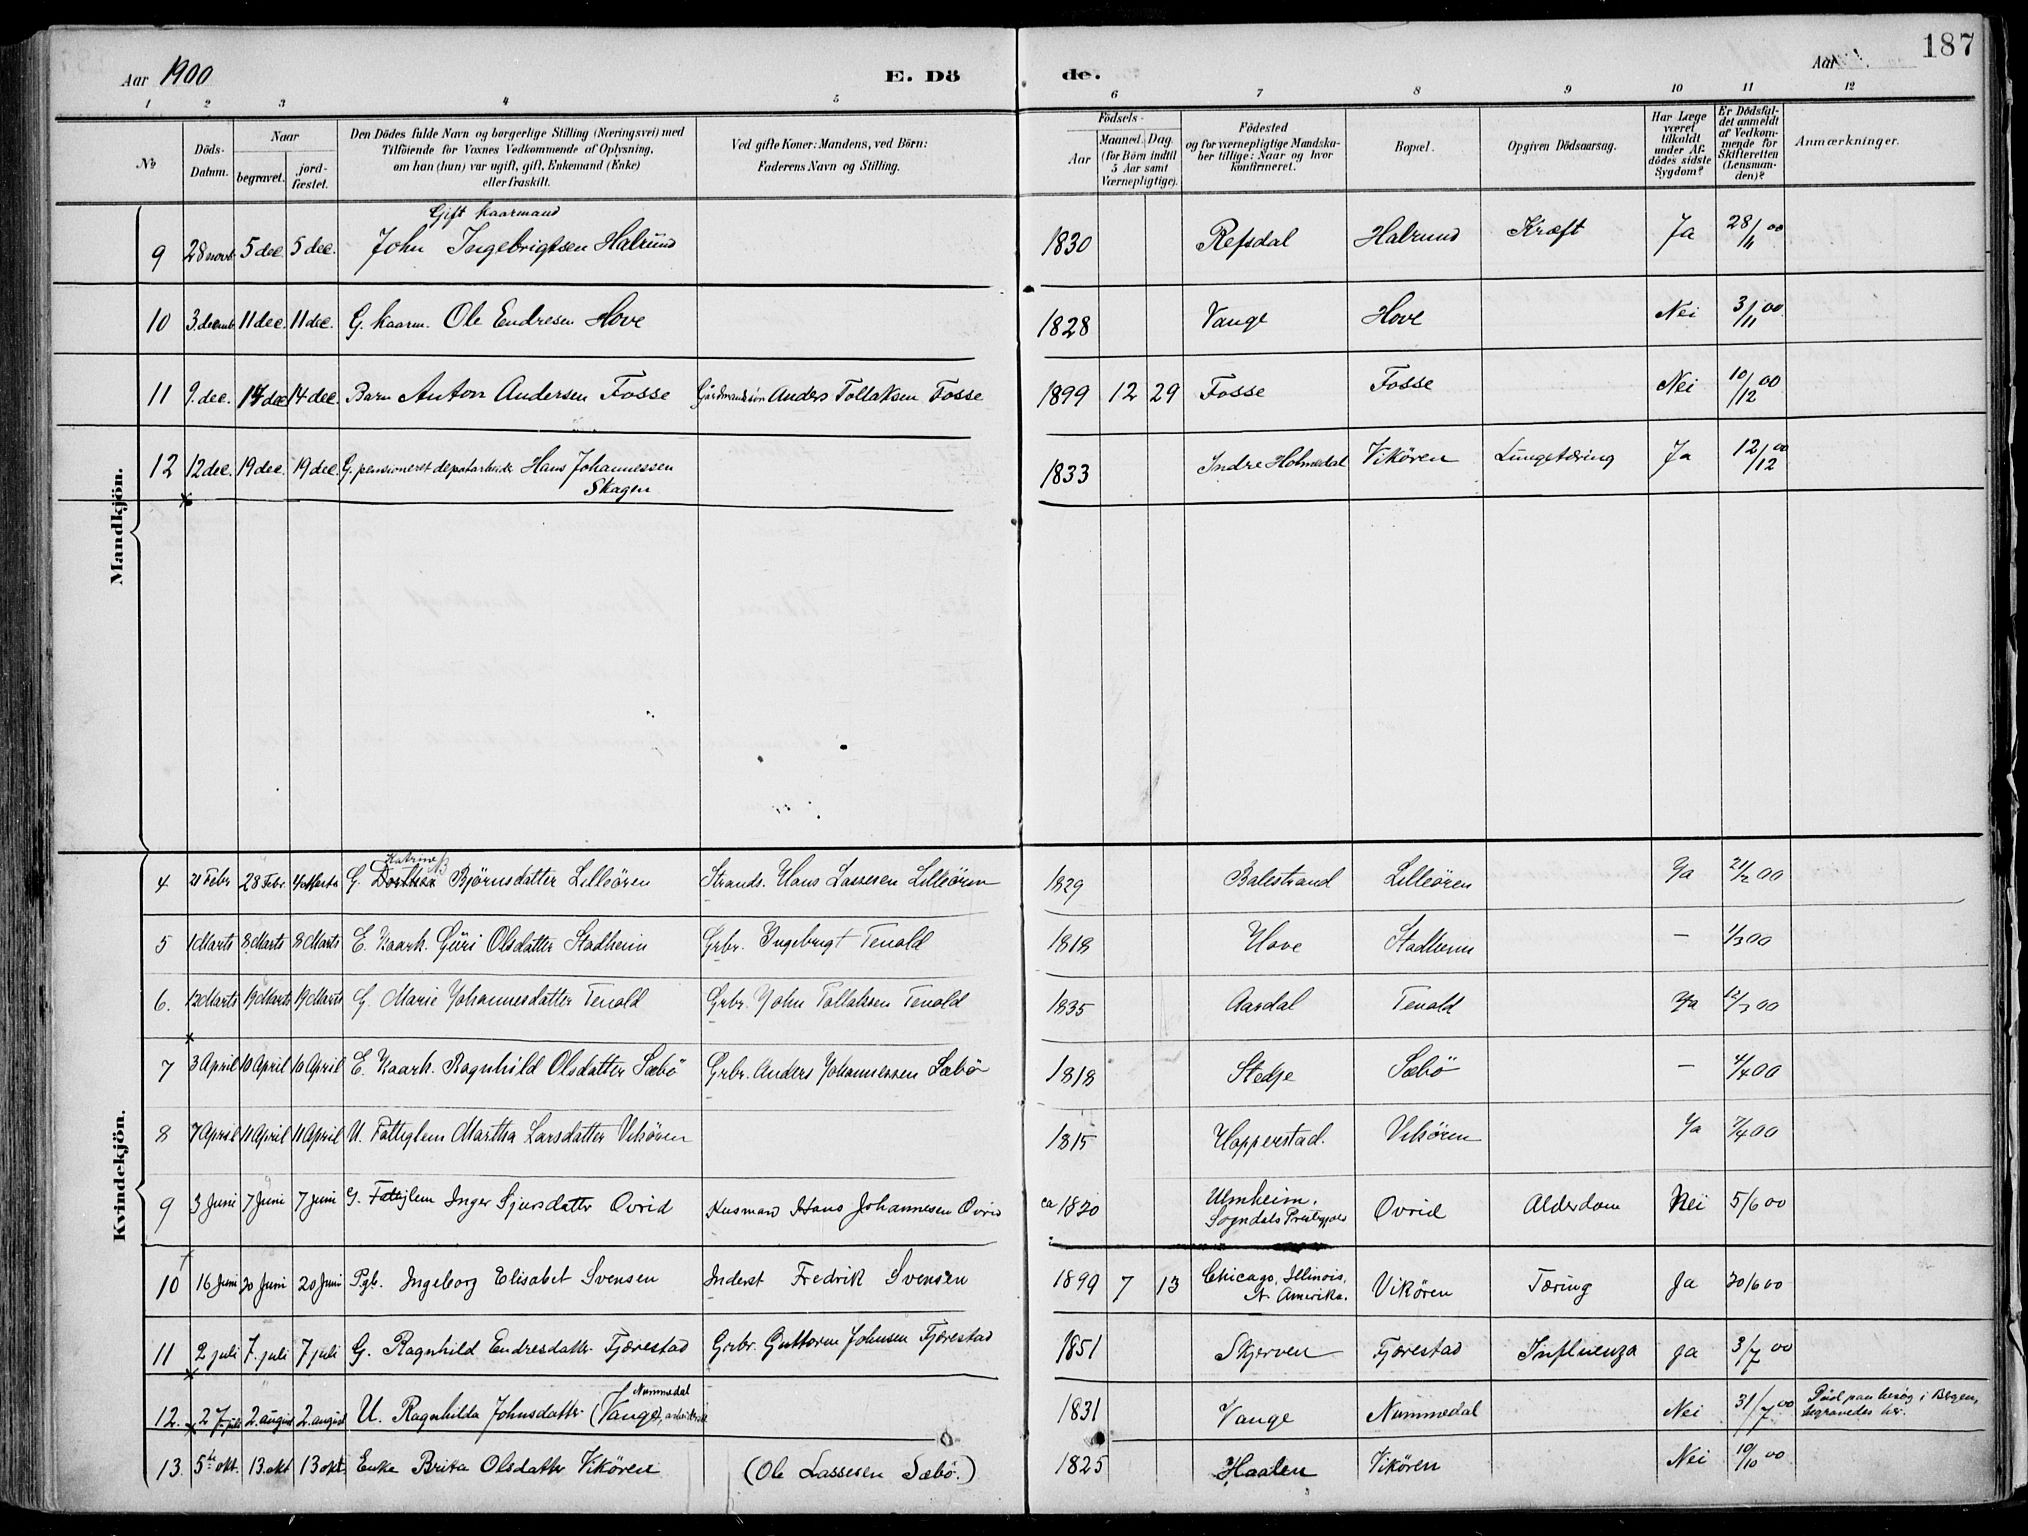 Aar 1900
E. Dö
de.
Aar
187
1 2 3 4 5 6 7 8 9 10 11 12
№
Döds-Datum.
Naar
begravet.
jord-fæstet.
Den Dödes fulde Navn og borgerlige Stilling (Næringsvei) med
Tilföiende for Voxnes Vedkommende af Oplysning,
om han (hun) var ugift, gift, Enkemand (Enke)
eller fraskilt.
Ved gifte Koner: Mandens, ved Börn:
Faderens Navn og Stilling.
Födsels-
Aar
Maaned. Dag.
(for Börn indtil
5 Aar samt
Værnepligtige).
Födested
og for værnepligtige Mandska-
ber tillige: Naar og hvor
konfirmeret.
Bopæl.
Opgiven Dödsaarsag.
Har Læge
været
tilkaldt
under Af-
dödes sidste
Sygdom?
Er Dödsfal-
det anmeldt
af Vedkom-
mende for
Skifteretten
(Lensman-
den)?
Anmærkninger.
Mandkjön.
Gift kaarmand
9 28 novb. 5 dec. 5 dec. John Ingebrigtsen Halrund 1830 Refsdal Halrund Kræft Ja 28/11 00
10 3. decemb. 11 dec. 11 dec. G. kaarm. Ole Endresen Hove 1828 Vange Hove Nei 3/11 00
11 9. dec. 14 dec 14 dec. Barn Anton Andersen Fosse Gårdmandssön Anders Tollaksen Fosse 1899 12 29 Fosse Fosse Nei 10/12 00
12 12 dec. 19 dec. 19 dec. G. pensioneret depotarbeider Hans Johannessen 1833 Indre Holmedal Vikören Lungetæring Ja 12/12 00
Skagen
Kvindekjön.
Katrine
4 21 Febr 28 Febr. 4 Marts G. Dorthea Bjørnsdatter Lilleören Strands. Hans Lassesen Lilleören 1829 Balestrand Lilleören Ja 21/2 00
5 1 Marts 8 Marts 8 Marts E. Kaark. Guri Olsdatter Stadheim Grbr. Ingebrigt Tenold 1818 Hove Stadheim — 1/3 00
6. 12 Marts 19 Marts 19 Marts G Marie Johannesdatter Tenold Grbr. John Tollaksen Tenold 1835 Aardal Tenold Ja 12/3 00
7 3 April 10 April 10 April E. Kaark. Ragnhild Olsdatter Sæbö Grbr. Anders Johannessen Sæbö 1818 Stedje Sæbö — 4/4 00
8 7 April 11 April 11 April U. Fattiglem Martha Larsdatter Vikören 1815 Hopperstad. Vikören Ja 7/4 00
9 3 Juni 7 Juni 7 Juni G. Fattiglem Inger Sjursdatter Ovrid Husmand Hans Johannesen Ovrid ca 1820 Ulmheim. Sogndals Prestegjæld Ovrid Alderdom Nei 5/6 00
10 16 Juni 20 Juni 20 Juni Pgb. Ingeborg Elisabet Svensen Inderst Fredrik Svensen 1899 7 13 Chicago, Illinois, N. Amerika. Vikören Tæring Ja 20/6 00
11 2 juli 7. juli 7 juli G. Ragnhild Endresdatter Fjærestad Grbr. Guttorm Johnsen Fjærestad 1851 Skjerven Fjærestad Influenza Ja 3/7 00
12. 27. juli 2. august 2. august U. Ragnhilda Johnsdatter (Vange) Nummedal 1831 Vange Nummedal Nei 31/7 00 Död paa besög i Bergen, begravedes her.
13. 5te okt. 13. okt 13 okt. Enke Brita Olsdatter Vikören (Ole Lassesen Sæbö.) 1825 Haalen Vikören Nei 10/10 00